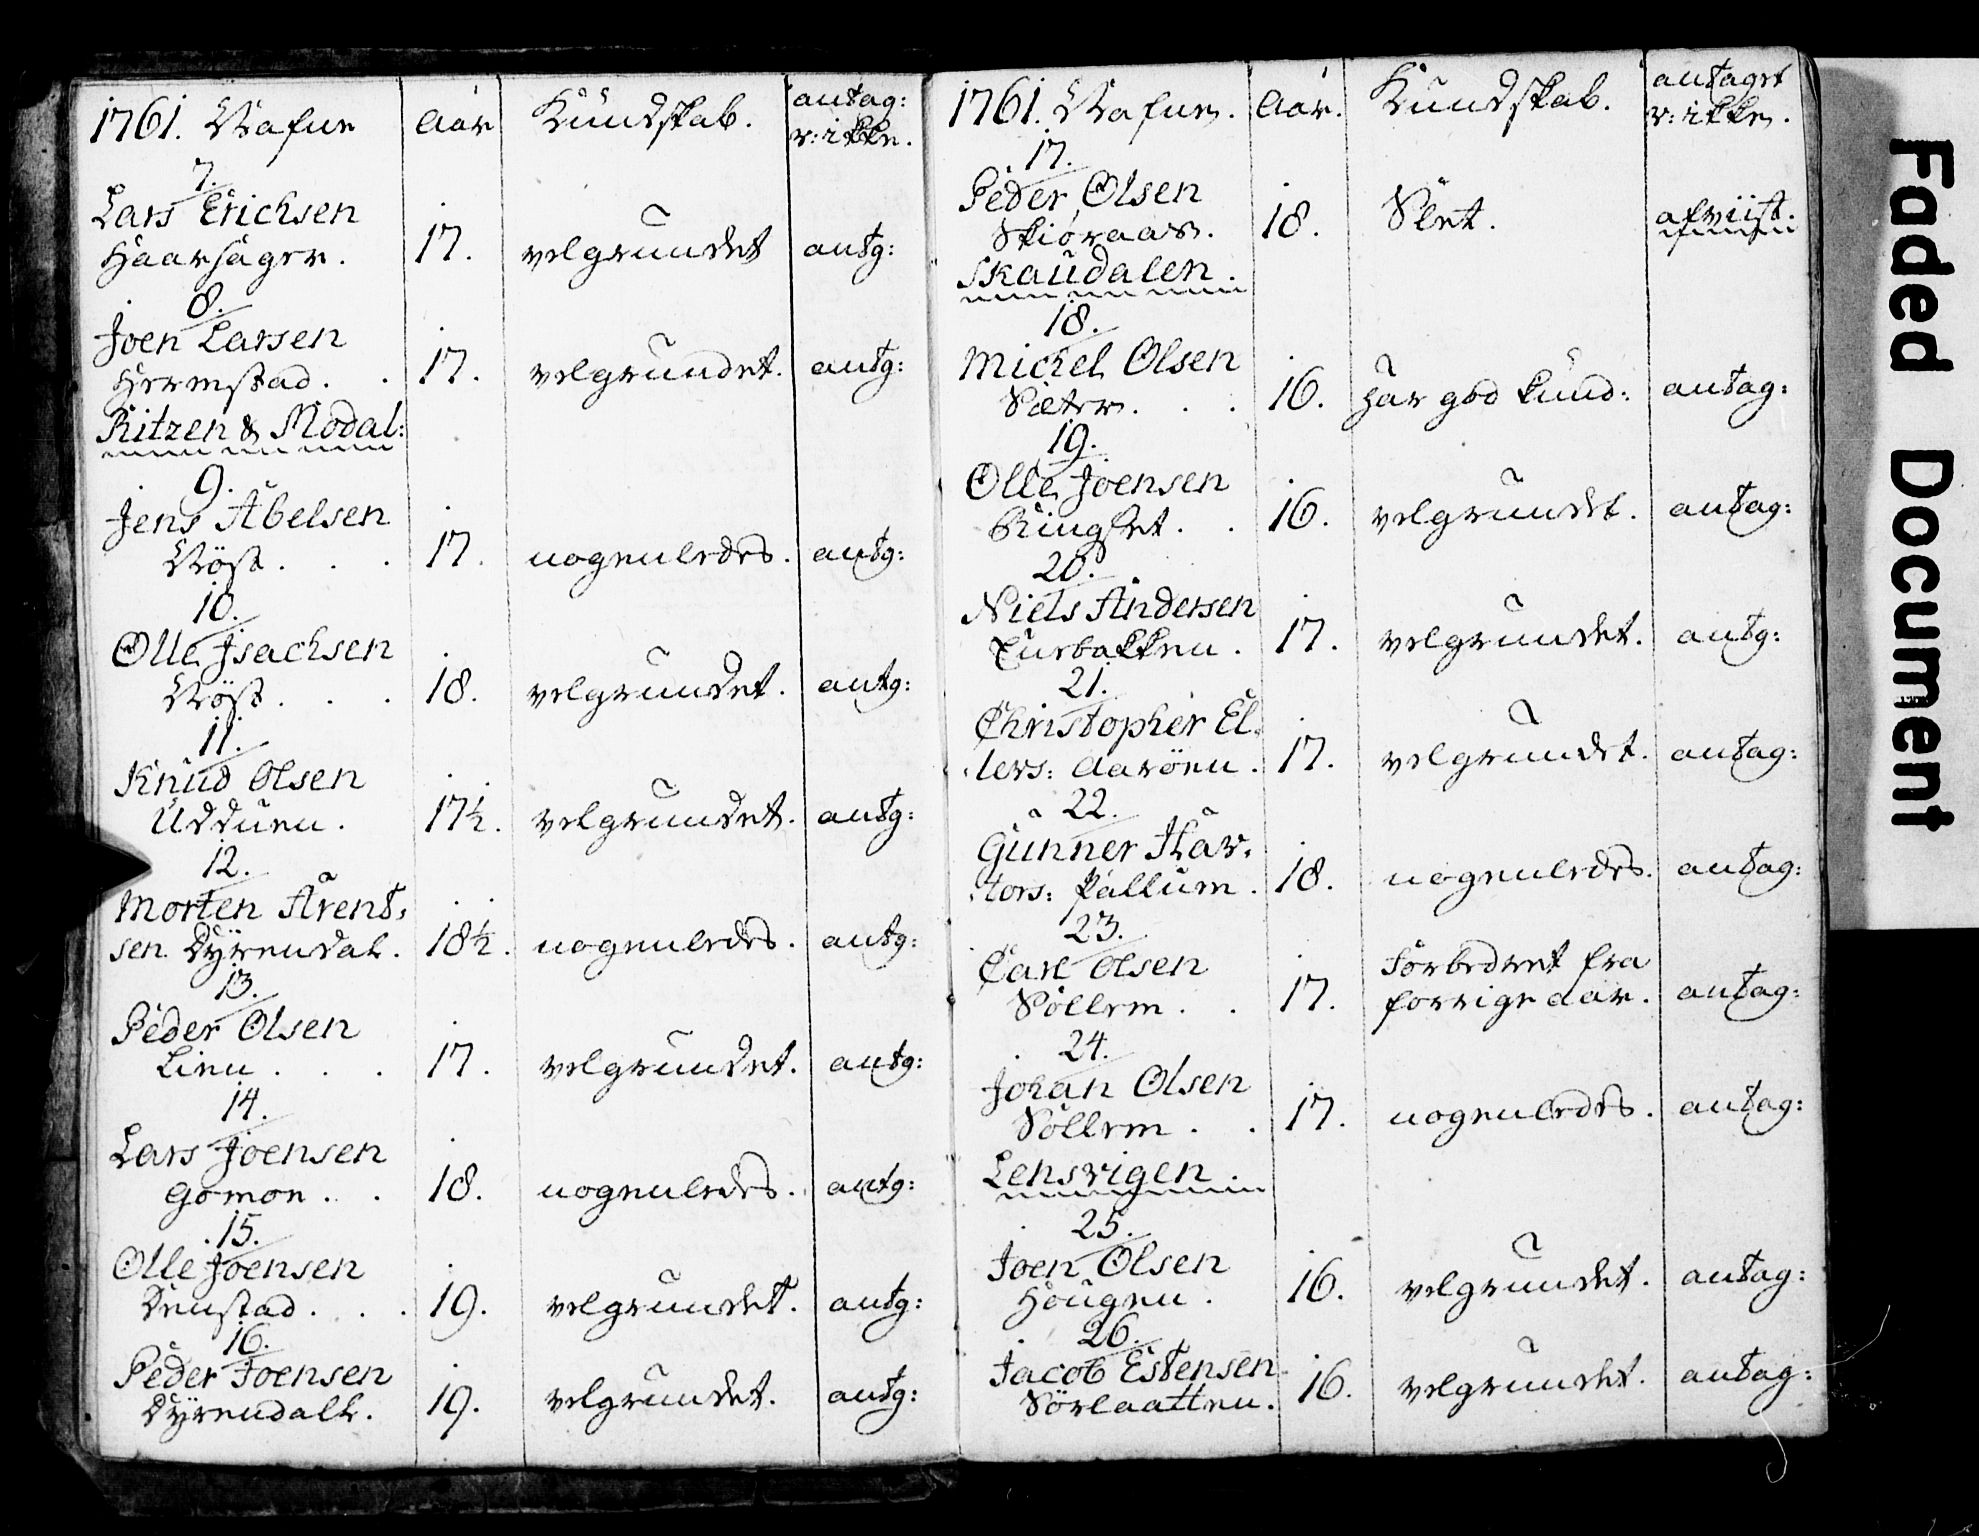 1761. Nafne Aar Kundskab. antag: e: ikke.
7.
Lars Erichsen
Haarsager. 17. velgrundet antg:
8.
Joen Larsen
Hermstad. . 17. velgrundet. antg:
Ritzen & Modal:
9.
Jens Abelsen
Nöst . . . 17. nogenledes. antg:
10.
Olle Jsachsen
Nöst . . . 18. velgrundet. antg:
11.
Knud Olsen
Udduen. 17½. velgrundet. antg:
12.
Morten Arent,
sen. Dÿrendal. 18½. nogenledes. antg:
13.
Peder Olsen
Lien . . . 17. velgrundet. antg:
14.
Lars Joensen
Gomon . . 18. nogenledes. antg:
15.
Olle Joensen
Denstad . . . 19. velgrundet. antg:
16.
Peder Joensen
Dÿrendall. 19. velgrundet. antg:
1761. Nafne. Aar. Kundskab. antaget e: ikke.
17.
Peder Olsen
Skiøraas. 18. Slet. afviist.
Skaudalen.
18.
Michel Olsen
Sæter. . . 16. har god kund: antag:
19.
Olle Joensen
Ringset . . 16. velgrundet. antag:
20.
Niels Andersen
17. velgrundet. antg:
21.
Christopher El,
lers: Aaröen. 17. velgrundet. antag:
22.
Gunner Har,
tors: Pallum. 18. nogenledes. antag:
23.
Carl Olsen
Söllem . . 17. Forbedret fra
forrige aar. antag:
24.
Johan Olsen
Söllem . . 17. nogenledes. antag:
Lensvigen.
25.
Joen Olsen
Hougen. 16. velgrundet. antag:
26.
Jacob Estensen
Sörlaatten. 16. velgrundet. antag:
Faded Document